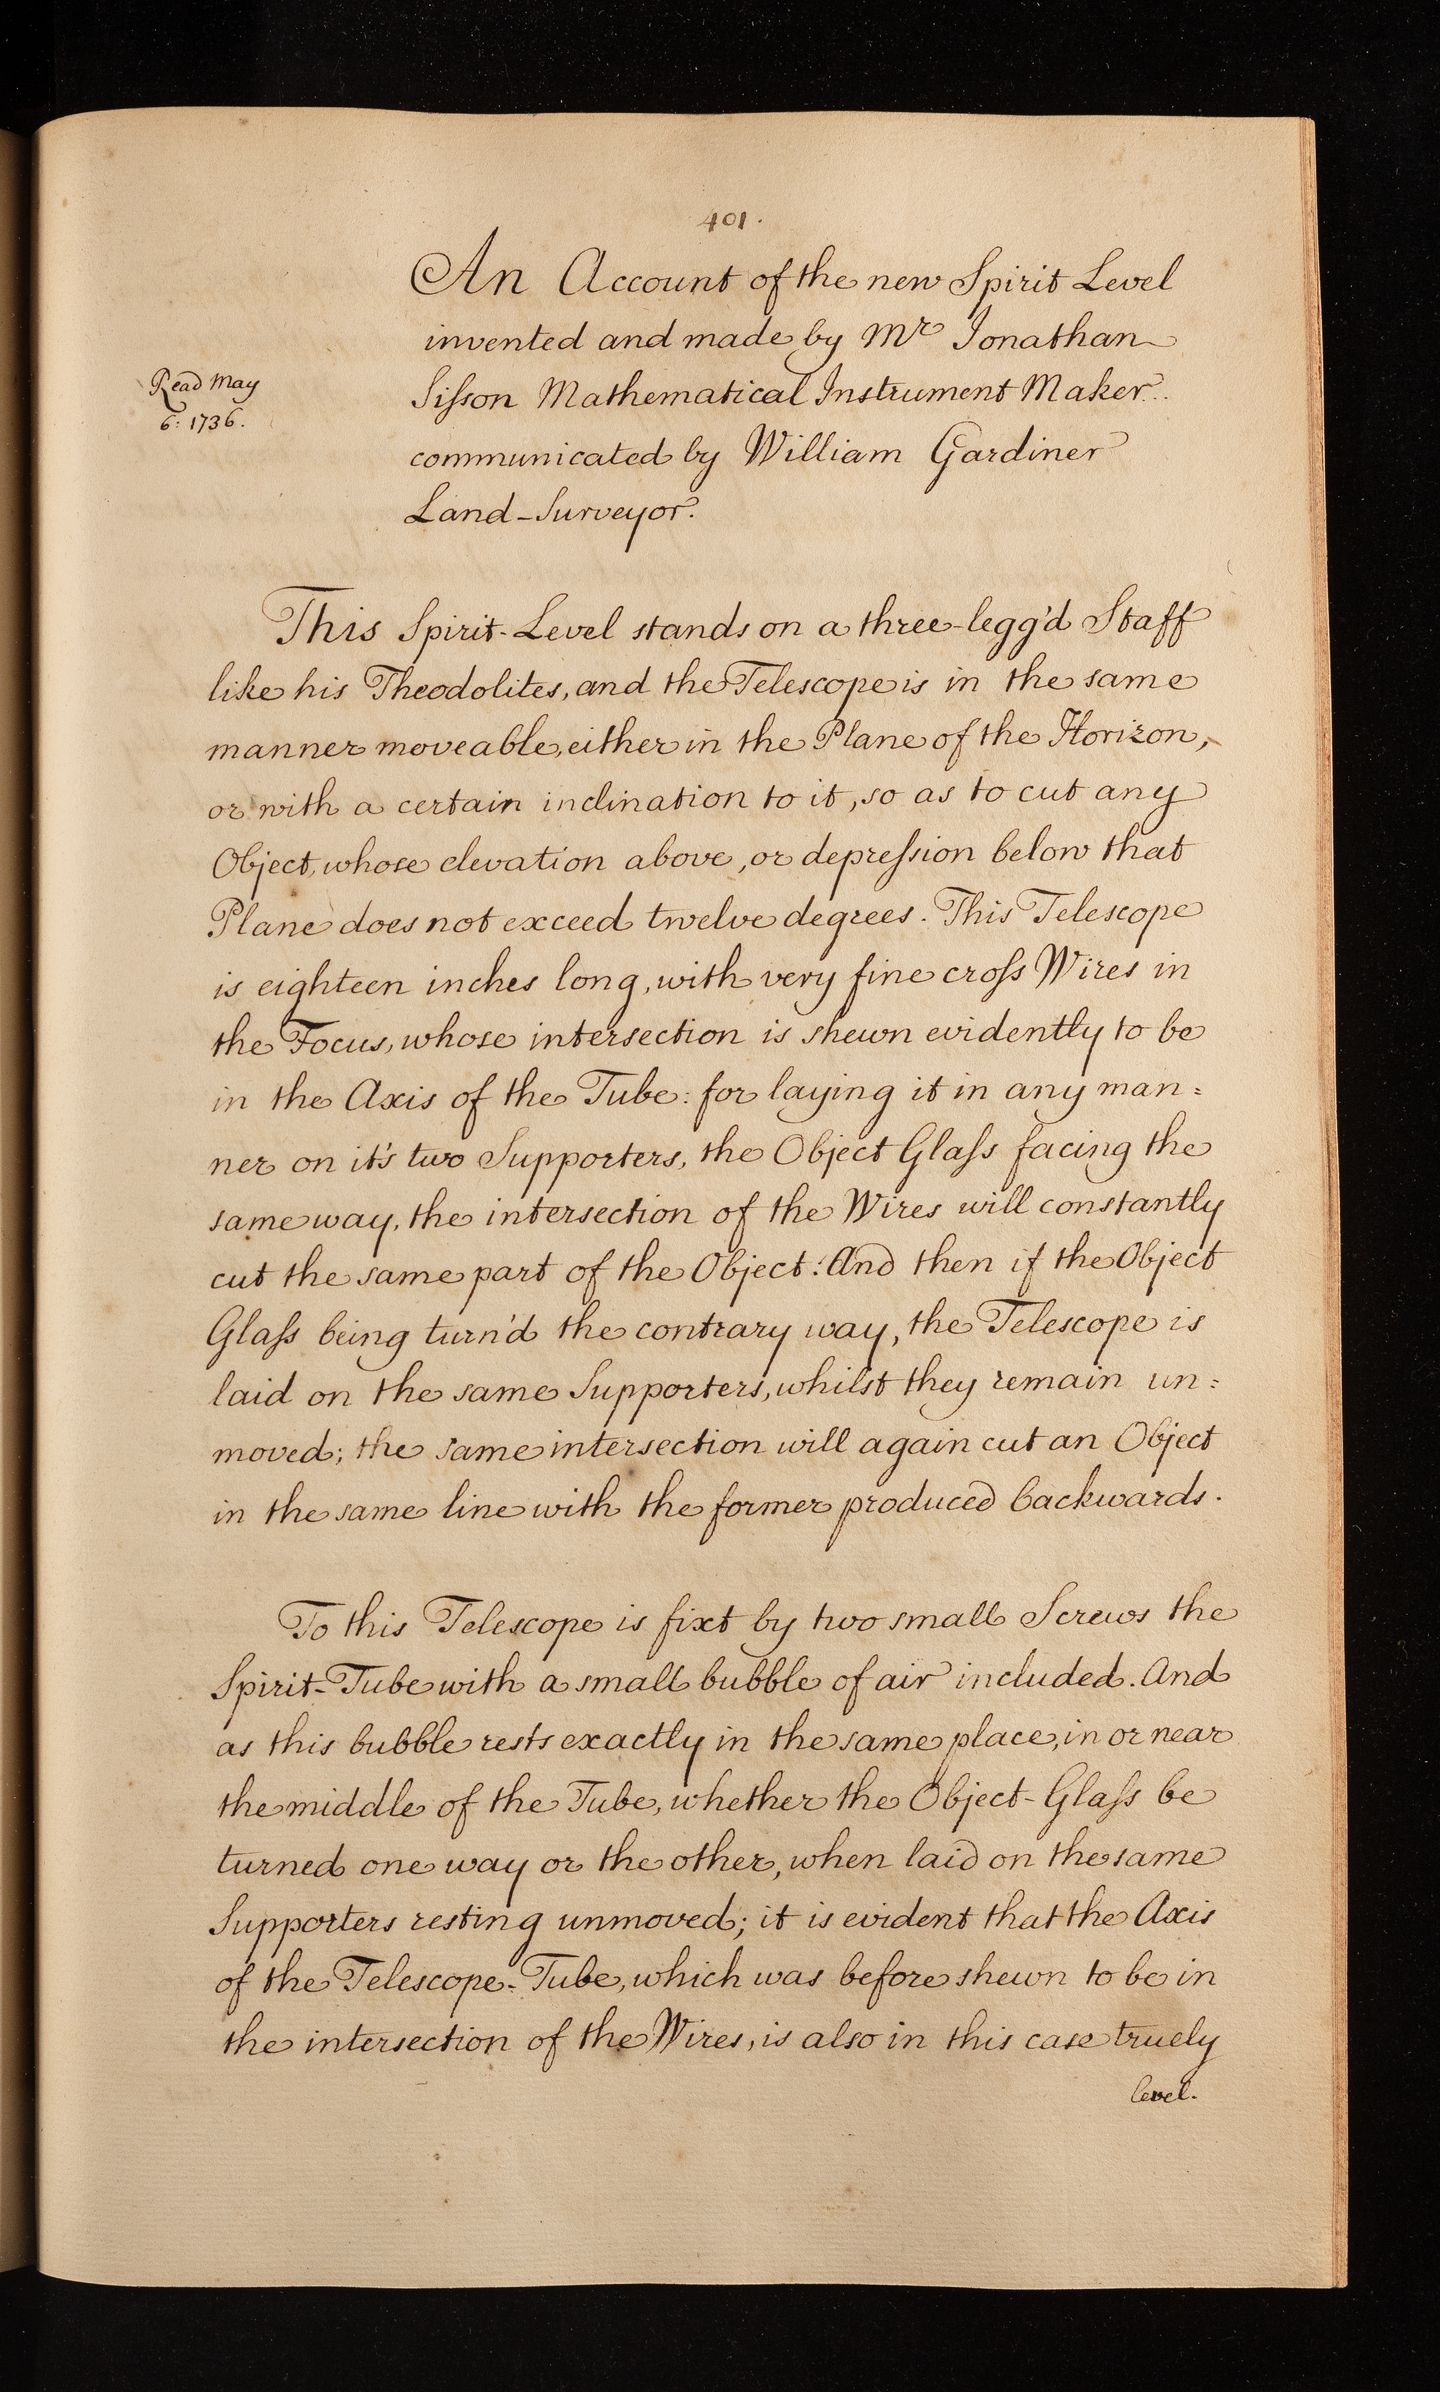 401.
An Account of the new Spirit Level
invented and made by Mr Jonathan
Read May
6: 1736.
Siſson Mathematical Instrument Maker.
communicated by William Gardiner
Land-Surveyor.
This Spirit-Level stands on a three-legg'd Staff
like his Theodolites, and the Telescope is in the same
manner moveable, either in the Plane of the Horizon,
or with a certain inclination to it, so as to cut any
Object, whose elevation above, or depreſsion below that
Plane does not exceed twelve degrees. This Telescope
is eighteen inches long, with very fine croſs Wires in
the Focus, whose intersection is shewn evidently to be
in the Axis of the Tube: for laying it in any man=
ner on it's two Supporters, the Object Glaſs facing the
same way, the intersection of the Wires will constantly
cut the same part of the Object: And then if the Object
Glaſs being turn'd the contrary way, the Telescope is
laid on the same Supporters, whilst they remain un=
moved; the same intersection will again cut an Object
in the same line with the former produced backwards.
To this Telescope is fixt by two small Screws the
Spirit-Tube with a small bubble of air included. And
as this bubble rests exactly in the same place, in or near
the middle of the Tube, whether the Object-Glaſs be
turned one way or the other, when laid on the same
Supporters resting unmoved; it is evident that the Axis
of the Telescope-Tube, which was before shewn to be in
the intersection of the Wires, is also in this case truely
level.